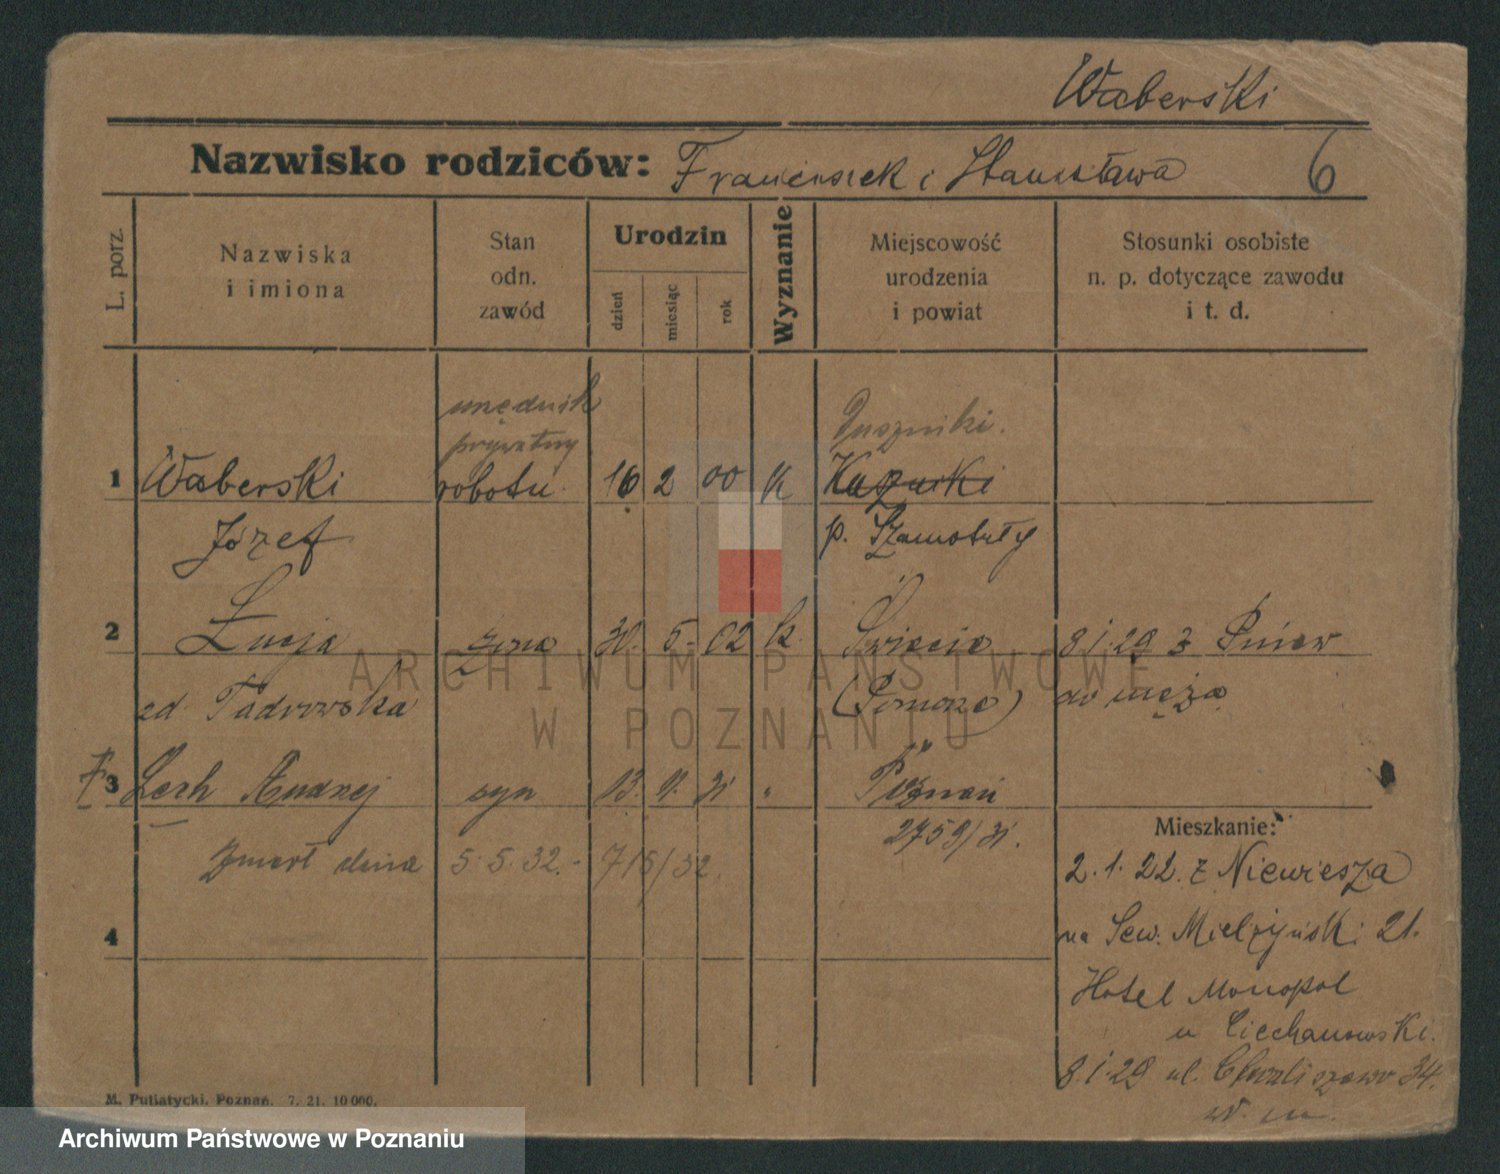 Waberski
Nazwisko rodziców: Franciszek i Stanisława 6
L. porz. Nazwiska i imiona Stan odn. zawód Urodzin dzień miesiąc rok Wyznanie Miejscowość urodzenia i powiat Stosunki osobiste n. p. dotyczące zawodu i t. d.
urzędnik Duszniki.
prywatny
1 Waberski robotn. 16 2 00 K
Józef p. Szamotuły
2 Łucja żona 30. 5. 02 k. Świecie 8.1.29 z Pniew
zd. (Pomorze) do męża
3 Lech Andrzej syn 13. 31 " Poznań
2759/31.
Zmarł dnia 5.5.32.- 715/32.
Mieszkanie:
2.1.22. z Niewiesza
4 na Sew. Mielżyński 21.
Hotel Monopol
u Ciechanowski.
8.1.29 ul. Chwaliszewo 34.
w. m.
M. Putiatycki, Poznań. 7. 21. 10 000.
ARCHIWUM PAŃSTWOWE
W POZNANIU
Archiwum Państwowe w Poznaniu